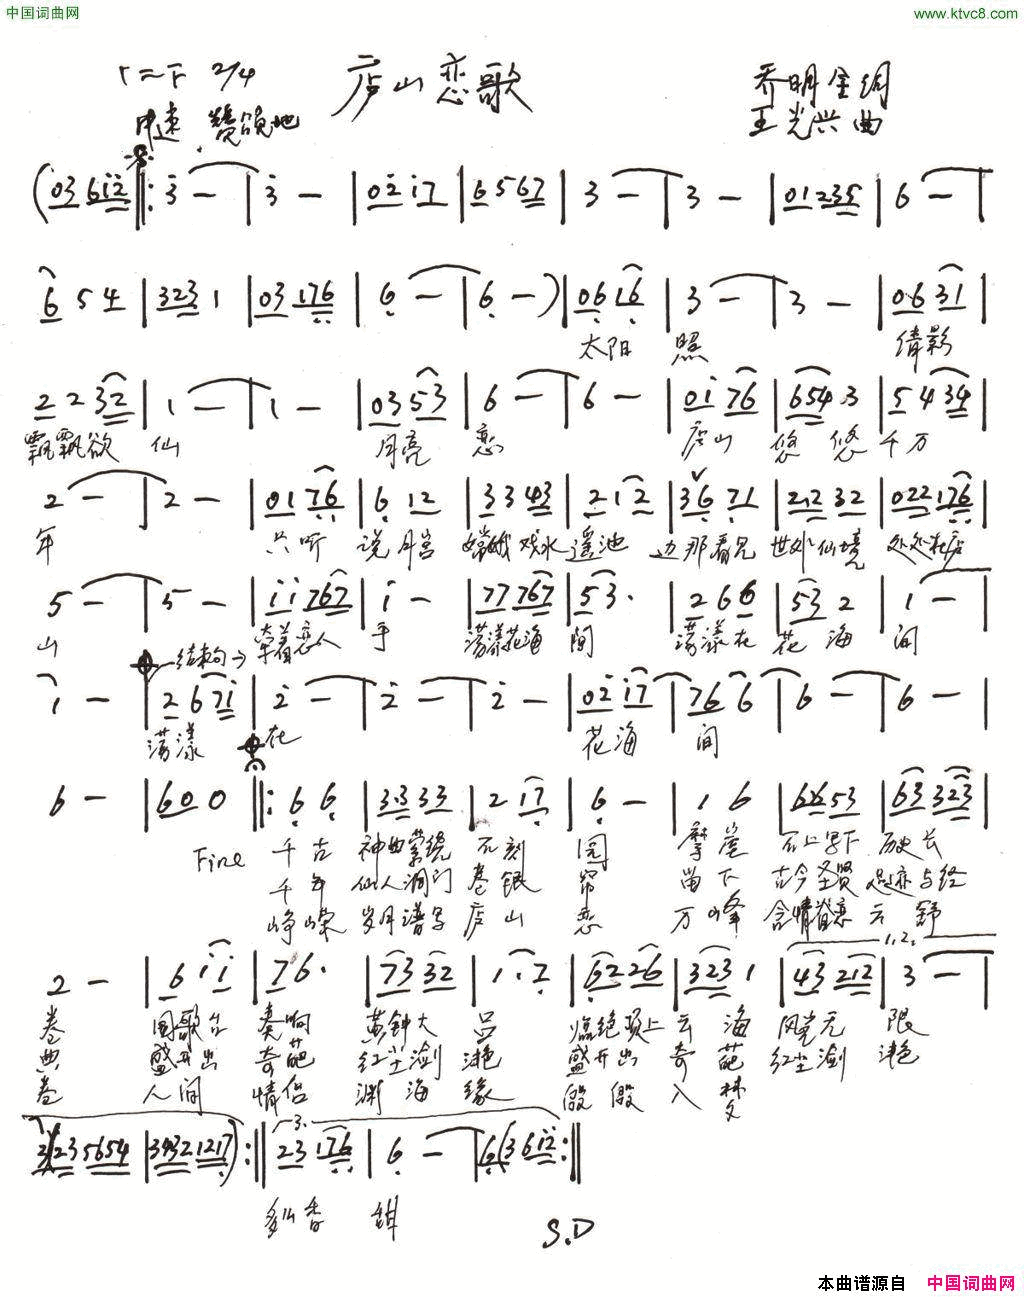 中国词曲网
www.ktvc8.com
1=F 2/4
庐山恋歌
乔明全词
中速 赞颂地
王光兴曲
(03 6i2 ‖: 3 — | 3 — | 02 i7 | 6 5 67 | 3 — | 3 — | 01235 | 6 — |
6 5 4 | 323 1 | 03 176 | 6 — | 6 — ) | 06 16 | 3 — | 3 — | 06 31 |
太阳 照 倩影
2 2 32 | 1 — | 1 — | 03 53 | 6 — | 6 — | 01 76 | 654 3 | 5 4 34 |
飘飘欲 仙 月亮 恋 庐山 悠 悠 千万
2 — | 2 — | 01 76 | 6 12 | 33 43 | 2 1 2 | 36 71 | 212 32 | 022 176 |
年 只听 说月宫 嫦娥戏水 遥池 边那看见 世外仙境 处处在庐
5 — | 5 — | ii 767 | i — | 77 767 | 53. | 2 6 6 | 53 2 | 1 — |
山 牵着恋人 手 荡漾花海 间 荡漾在 花 海 间
结束句→
1 — | 2 6 7i | 2 — | 2 — | 2 — | 02 i7 | 76 6 | 6 — | 6 — |
荡漾 在 花海 间
6 — | 60 0 ‖: 6 6 | 33 33 | 2 17 | 6 — | 1 6 | 66 53 | 63 323 |
Fine 千古 神曲萦绕 石刻 园 摩崖 石上写下 历史长
千年 仙人洞门 卷银 帘 留下 古今圣贤 足迹与经
峥嵘 岁月谱写 庐山 恋 万峰 含情 云舒
1,2,
2 — | 6 i i | 76. | 73 32 | 1. 2 | 62 26 | 323 1 | 43 212 | 3 — |
卷 围歌台 奏响 黄钟大 吕 临绝顶上 云 海 风光无 限
典 盛开出 奇葩 红尘 滟 盛开出 奇 葩 红尘 滟
卷 人间 情侣 渊海 缘
3.
23 5654 | 3432 1217) :‖ 23 176 | 6 — | 6 (3 6i2 :‖
香 甜
S.D
本曲谱源自 中国词曲网